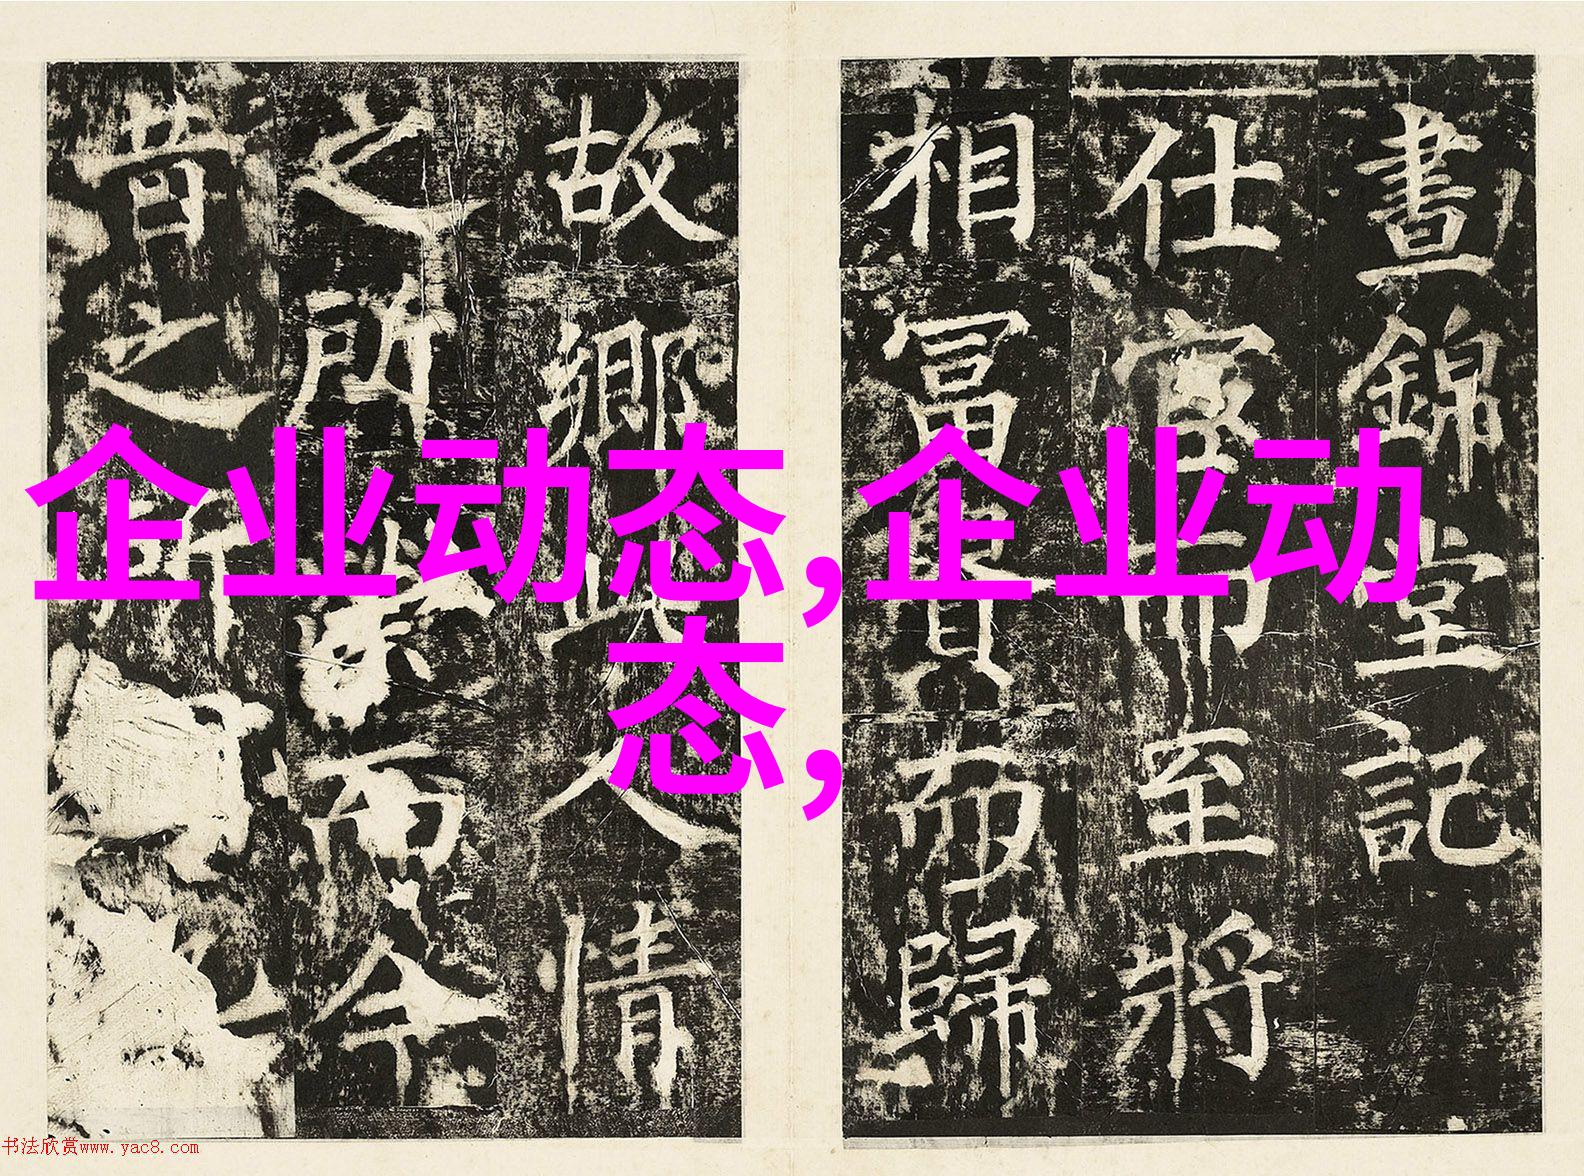 晝錦堂記
仕宦而至將
相冨貴而歸
故鄉此人情
之所而今
昔之所
企业动态,企业动
态,
书法欣赏www.yac8.com